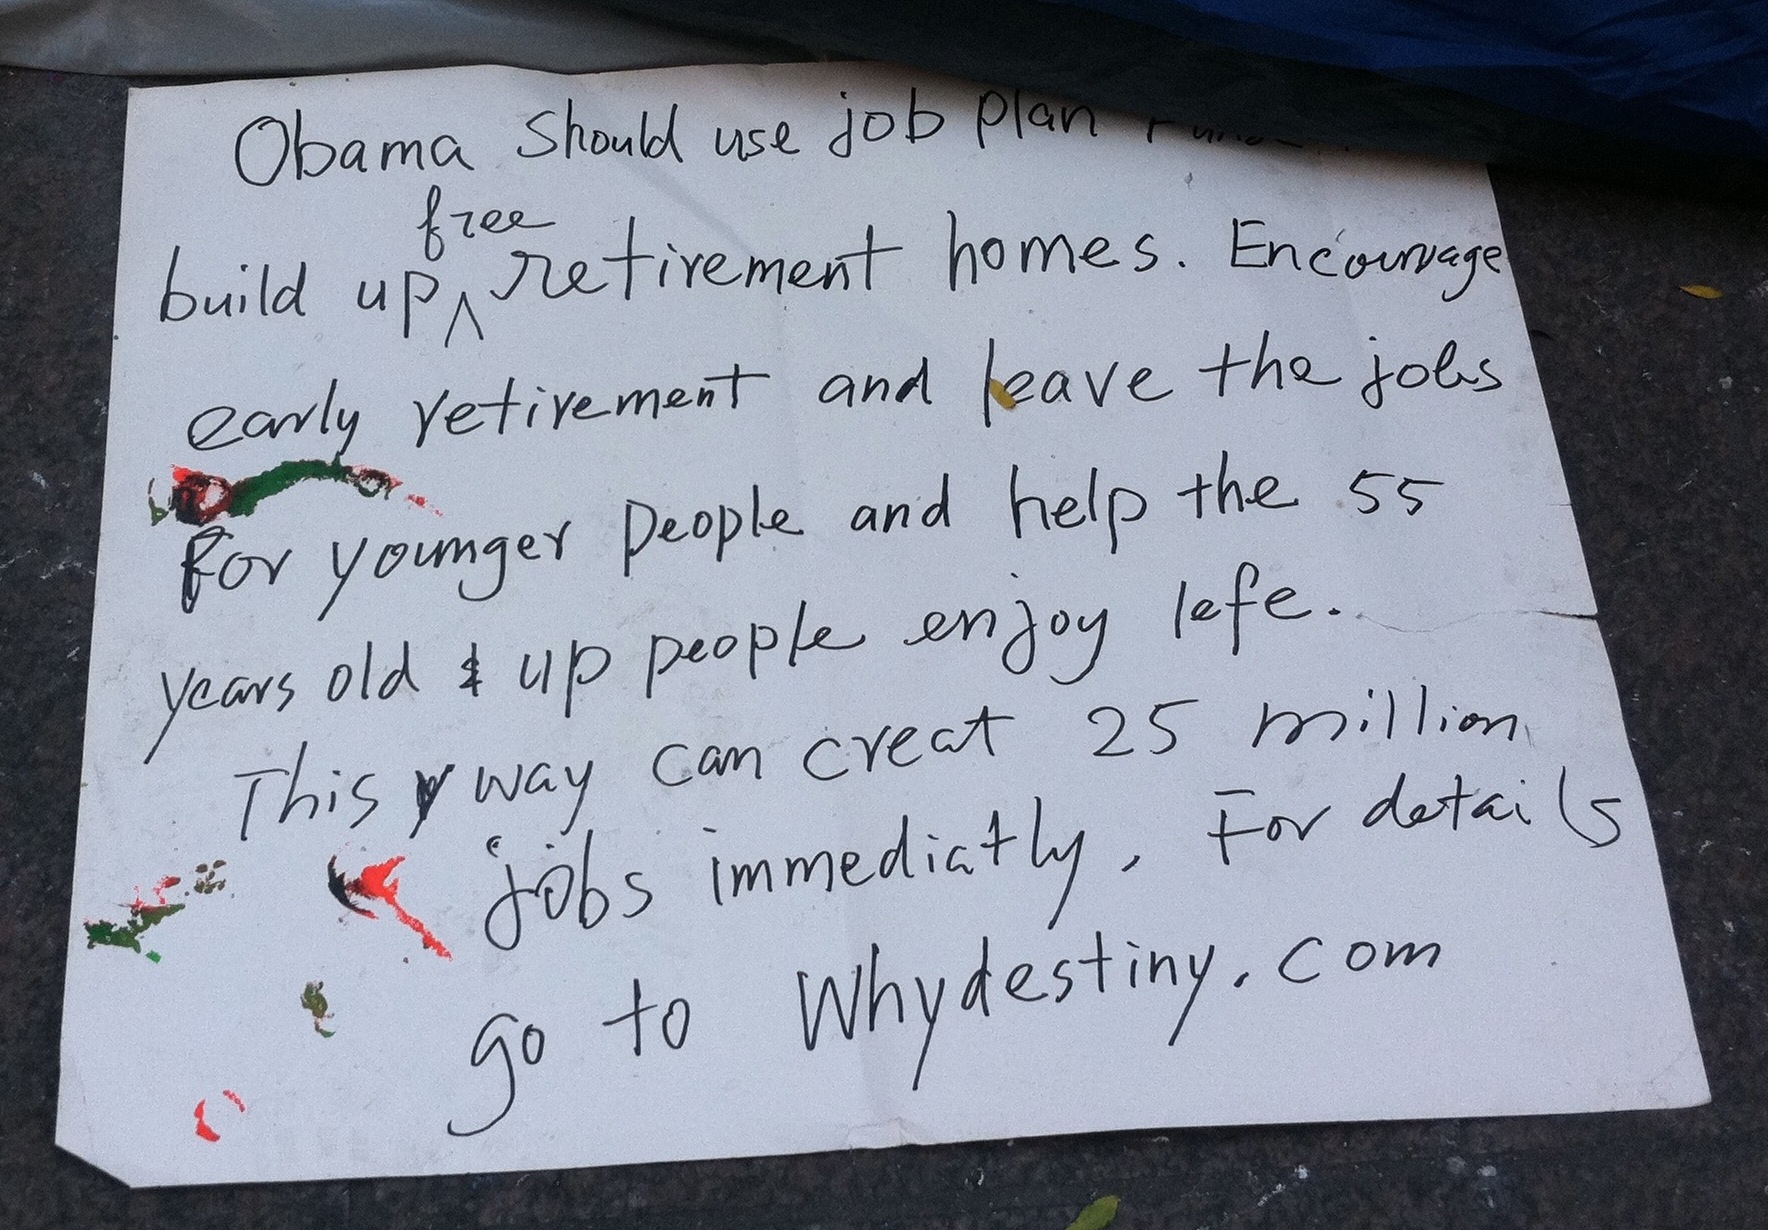 Obama should use job plan
build up free retirement homes. Encourage
early retirement and leave the jobs
for younger people and help the 55
years old & up people enjoy lefe.
This way can creat 25 million
jobs immediatly, For details
go to Whydestiny.com